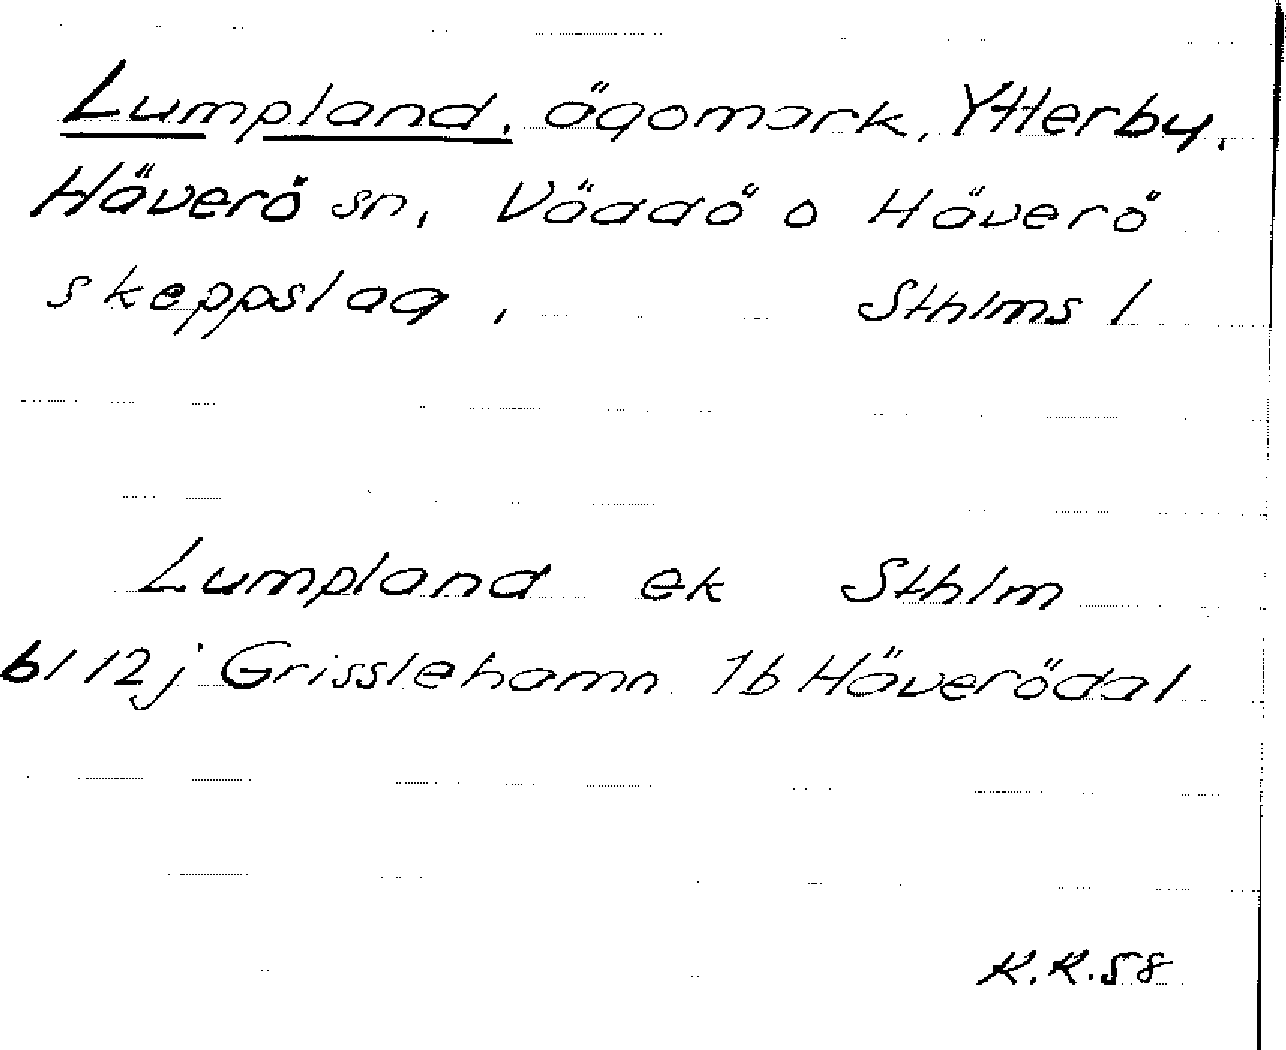 Lumpland, ägomark, Ytterby,
Häverö sn, Väddö o Häverö
skeppslag, Sthlms l
Lumpland ek Sthlm
bl 12j Grisslehamn 1b Häverödal
K.K.58